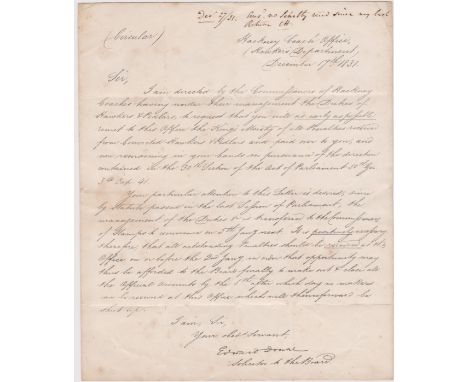 Dec 27/31. Ansd no Penalty recd since my last
Return
(Circular)
Hackney Coach Office,
(Hawkers Department,
December 17th 1831.
Sir,
I am directed by the Commissioners of Hackney
Coaches having under their management the Duties of
Hawkers & Pedlars, to request that you will as early as possible
remit to this Office the Kings Moiety of all Penalties received
from Convicted Hawkers & Pedlars and paid over to you, and
now remaining in your hands in pursuance of the direction
contained in the Section of the Act of Parliament 50th Geo
3rd Cap 41
Your particular attention to this Letter is desired, since
by Statute passed in the last Session of Parliament, the
management of the Duties is transferred to the Commissioners
of Stamps to commence on 5th Jany next. It is positively necessary
therefore, that all outstanding Penalties should be received at this
Office on or before the 2nd Jany in order that opportunity may
thus be afforded to the Board finally to make out & close all
the Official Accounts by the 5th after which day no matters
can be received at this Office which will thenceforward be
shut up.
I am, Sir,
Your obedt Servant,
Edward
Solicitor to the Board.